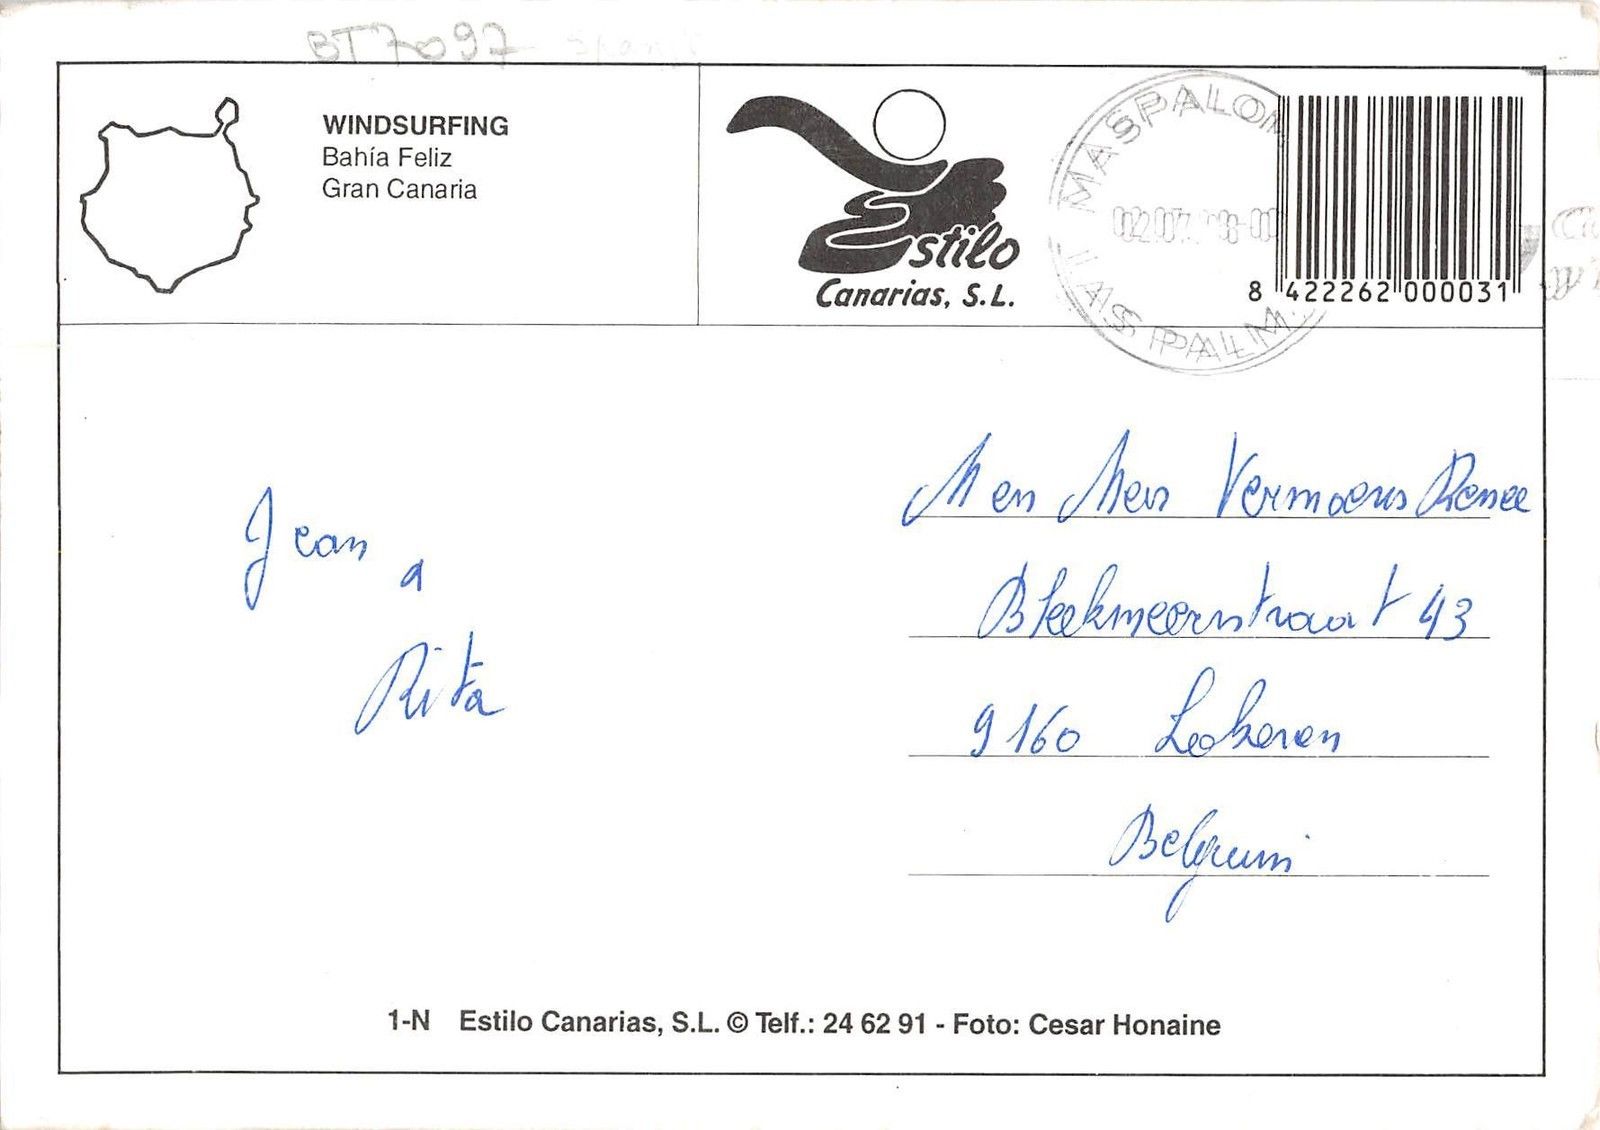 BT7097
WINDSURFING
Bahía Feliz
Gran Canaria
Estilo
Canarias, S.L.
MASPALOM
LAS PALM
8 422262 000031
Jean
a
Rita
M en Mev Vermoens Renee
Bleekmeerstraat 43
9160 Lokeren
Belgium
1-N Estilo Canarias, S.L. © Telf.: 24 62 91 - Foto: Cesar Honaine